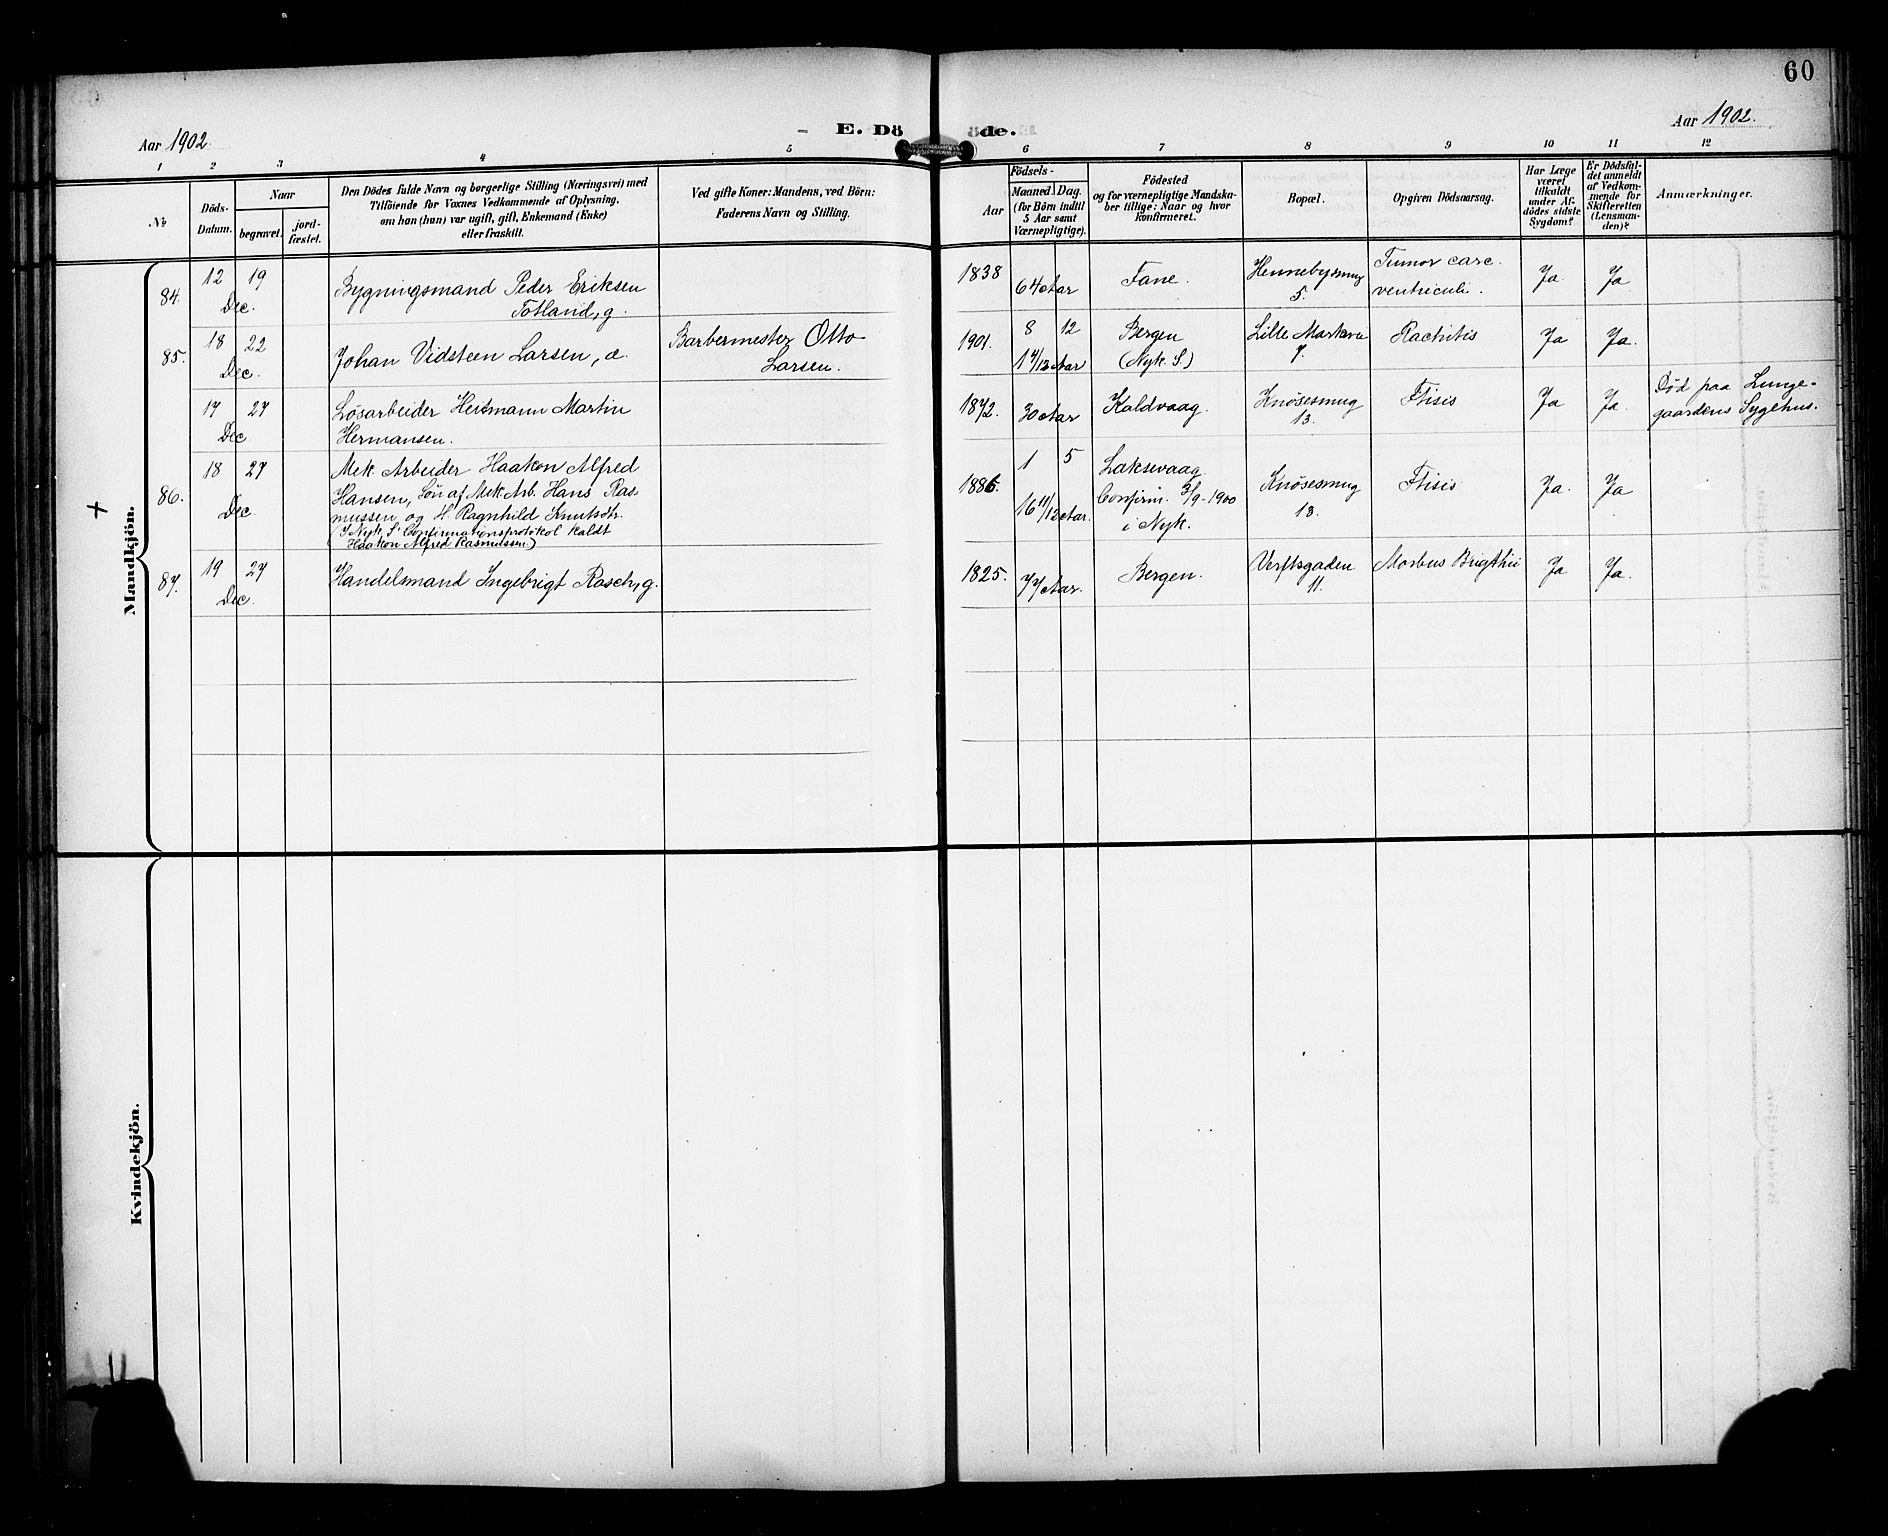 60
Aar 1902
E. Döde.
Aar 1902.
1 2 3 4 5 6 7 8 9 10 11 12
No
Döds-
Datum.
Naar
begravet.
jord-
fæstet.
Den Dödes fulde Navn og borgerlige Stilling (Næringsvei) med
Tilföiende for Voxnes Vedkommende af Oplysning,
om han (hun) var ugift, gift, Enkemand (Enke)
eller fraskilt.
Ved gifte Koner: Mandens, ved Börn:
Faderens Navn og Stilling.
Födsels-
Aar
Maaned
Dag.
(for Börn indtil
5 Aar samt
Værnepligtige).
Födested
og for værnepligtige Mandska-
ber tillige: Naar og hvor
konfirmeret.
Bopæl.
Opgiven Dödsaarsag.
Har Læge
været
tilkaldt
under Af-
dödes sidste
Sygdom?
Er Dödsfal-
det anmeldt
af Vedkom-
mende for
Skifteretten
(Lensman-
den)?
Anmærkninger.
Mandkjön.
84.
12
Dec.
19
Bygningsmand Peder Eriksen
Totland, g.
1838
64 Aar
Fane.
Hennebysmug
5.
Tumor carc.
ventriculi.
Ja
Ja
85.
18
Dec.
22
Johan Vidsteen Larsen, a.
Barbermester Otto
Larsen.
1901.
8 12
1 4/12 Aar
Bergen
(Nyk. S.)
Lille Markevei
7.
Rachitis
Ja
Ja.
17
Dec
27
Lösarbeider Heitmann Martin
Hermansen.
1872.
30 Aar
Kaldvaag.
Knösesmug
13.
Ftisis
Ja
Ja.
Död paa Lunge-
gaardens Sygehus.
86.
18
Dec
27
Mek. Arbeider Haakon Alfred
Hansen, Sön af Mek. Arb. Hans Ras-
mussen og H. Ragnhild Knutsdtr.
(I Nyk. S. Confirmationsprotokol kaldt
Haakon Alfred Rasmussen)
1886.
1 5
16 11/12 Aar.
Laksevaag
Confirm. /9-1900
i Nyk.
Knösesmug
13.
Ftisis
Ja.
Ja
87.
19
Dec.
27
Handelsmand Ingebrigt Rasch, g.
1825.
77 Aar.
Bergen.
Verftsgaden
11.
Morbus Brigthii
Ja
Ja.
Kvindekjön.